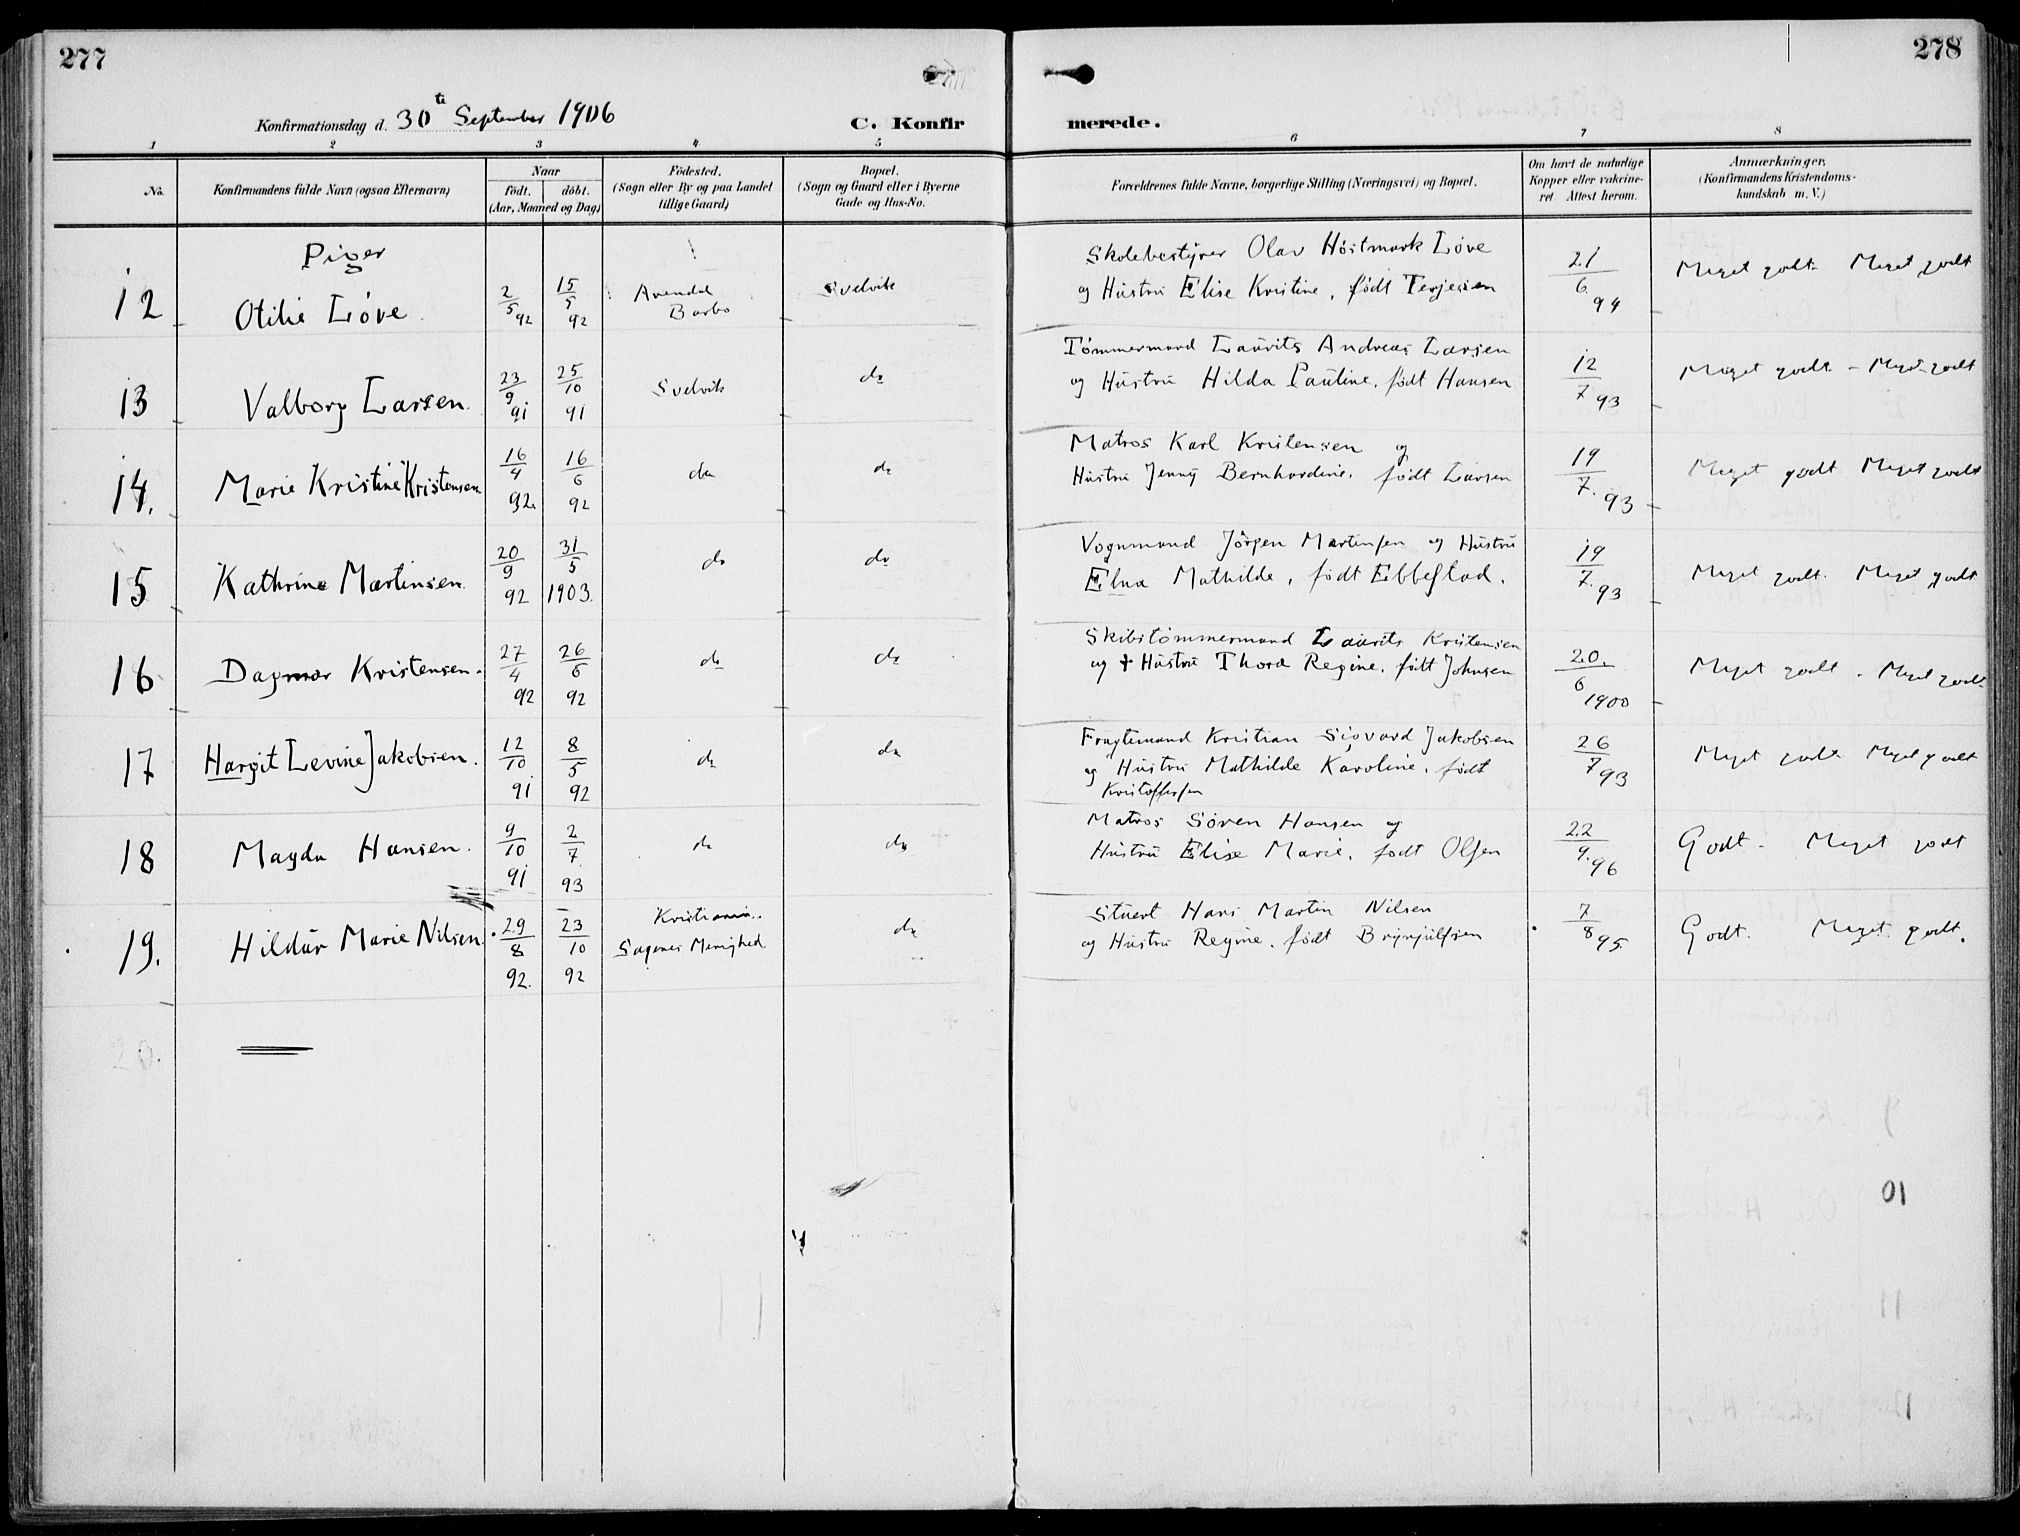 277
278
Konfirmationsdag d. 30te September 1906
C. Konfir
merede.
1 2 3 4 5 6 7 8
No.
Konfirmandens fulde Navn (ogsaa Efternavn)
Naar
födt. döbt.
(Aar, Maaned og Dag)
Födested.
(Sogn eller By og paa Landet
tillige Gaard)
Bopæl.
(Sogn og Gaard eller i Byerne
Gade og Hus-No.
Forældrenes fulde Navne, borgerlige Stilling (Næringsvei) og Bopæl.
Om havt de naturlige
Kopper eller vakcine-
ret. Attest herom.
Anmærkninger.
(Konfirmandens Kristendoms-
kundskab m. V.)
Piger
12 Otilie Löve 2/5 92 15/5 92 Arendal Svelvik
Barbo
Skolebestyrer Olav Höstmark Löve
og Hustru Elise Kristine, födt Terjesen 21/6 94 Meget godt. Meget godt
13 Valborg Larsen. 23/9 91 25/10 91 Svelvik do
Tömmermand Laurits Andreas Larsen
og Hustru Hilda Pauline, födt Hansen 12/7 93 Meget godt - Meget godt
14. Marie Kristine Kristensen 16/4 92. 16/6 92 do do
Matros Karl Kristensen og
Hustru Jenny Bernhardine, födt Larsen 19/7. 93 Meget godt Meget godt
15 Kathrine Martinsen. 20/9 92 31/5 1903. do do
Vognmand Jörgen Martinsen og Hustru
Elna Mathilde, födt Ebbestad. 19/7. 93 Meget godt. Meget godt
16 Dagmar Kristensen. 27/4 92 26/6 92 do do
Skibstömmermand Laurits Kristensen
og † Hustru Thora Regine, födt Johnsen 20./6 1900 Meget godt. Meget godt
17 Hargit Levine Jakobsen. 12/10 91 8/5 92 do do
Fragtemand Kristian Sigvard Jakobsen
og Hustru Mathilde Karoline, födt
Kristoffersen 26/7 93 Meget godt Meget godt
18 Magda Hansen. 9/10 91 2/7. 93 do do
Matros Sören Hansen og
Hustru Elise Marie, födt Olsen 22/9. 96 Godt - Meget godt
19. Hildur Marie Nilsen. 29/8 92. 23/10 92 Kristiania. do
Sagenes Menighed.
Stuert Hans Martin Nilsen
og Hustru Regine, födt Brynjulfsen 7/8 95 Godt. Meget godt.
20.